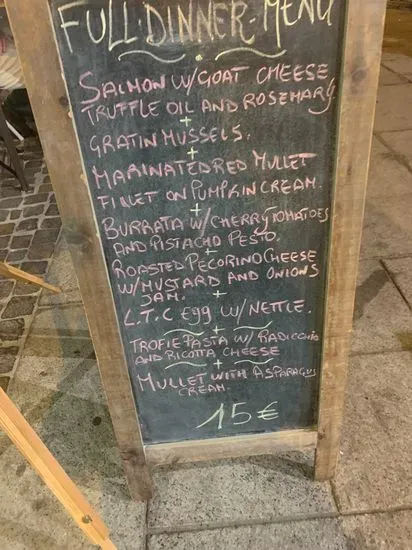 FULL·DINNER·MENU
SALMON W/GOAT CHEESE,
TRUFFLE OIL AND ROSEMARY
+
GRATIN MUSSELS.
+
MARINATED RED MULLET
FILLET ON PUMPKIN CREAM.
+
BURRATA W/CHERRYTOMATOES
AND PISTACHIO PESTO.
+
ROASTED PECORINO CHEESE
W/MUSTARD AND ONIONS
JAM.
+
L.T.C EGG W/NETTLE.
+
TROFIE PASTA W/ RADICCHIO
AND RICOTTA CHEESE
+
MULLET WITH ASPARAGUS
CREAM.
15€